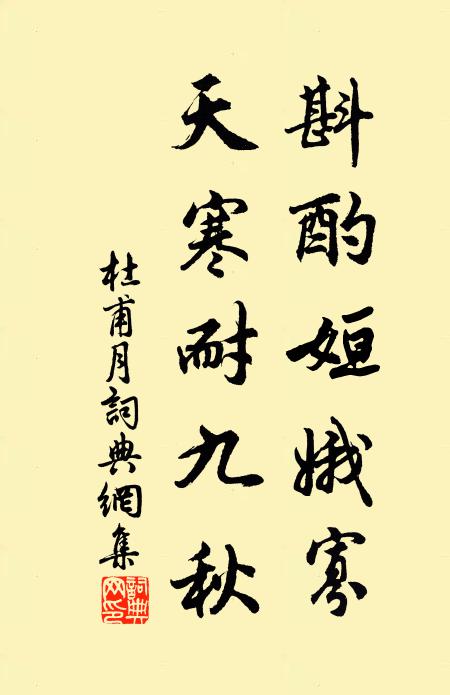 斟酌姮娥寡
天寒耐九秋
杜甫月詞典網集
詞典网印